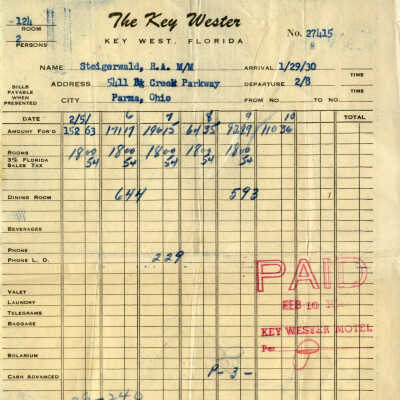 124
ROOM
2
PERSONS
The Key Wester
KEY WEST, FLORIDA
No. 27415
8
NAME Steigerwald, R.A. M/M ARRIVAL 1/29/30 TIME
BILLS PAYABLE WHEN PRESENTED
ADDRESS 5411 Creek Parkway DEPARTURE 2/8 TIME
CITY Parma, Ohio FROM NO. TO NO.
DATE 2/5/ 6 7 8 9 10 TOTAL
AMOUNT FOR'D 152 63 171 17 196 15 64 35 110 36
ROOMS 18 00 18 00 18 00 18 00 18 00
3% FLORIDA SALES TAX 54 54 54 54 54
DINING ROOM 6 44 5 93
BEVERAGES
PHONE
PHONE L. D. 2 29
VALET
LAUNDRY
TELEGRAMS
BAGGAGE
SOLARIUM
CASH ADVANCED P-3-
PAID
FEB 10
KEY WESTER MOTEL
Per